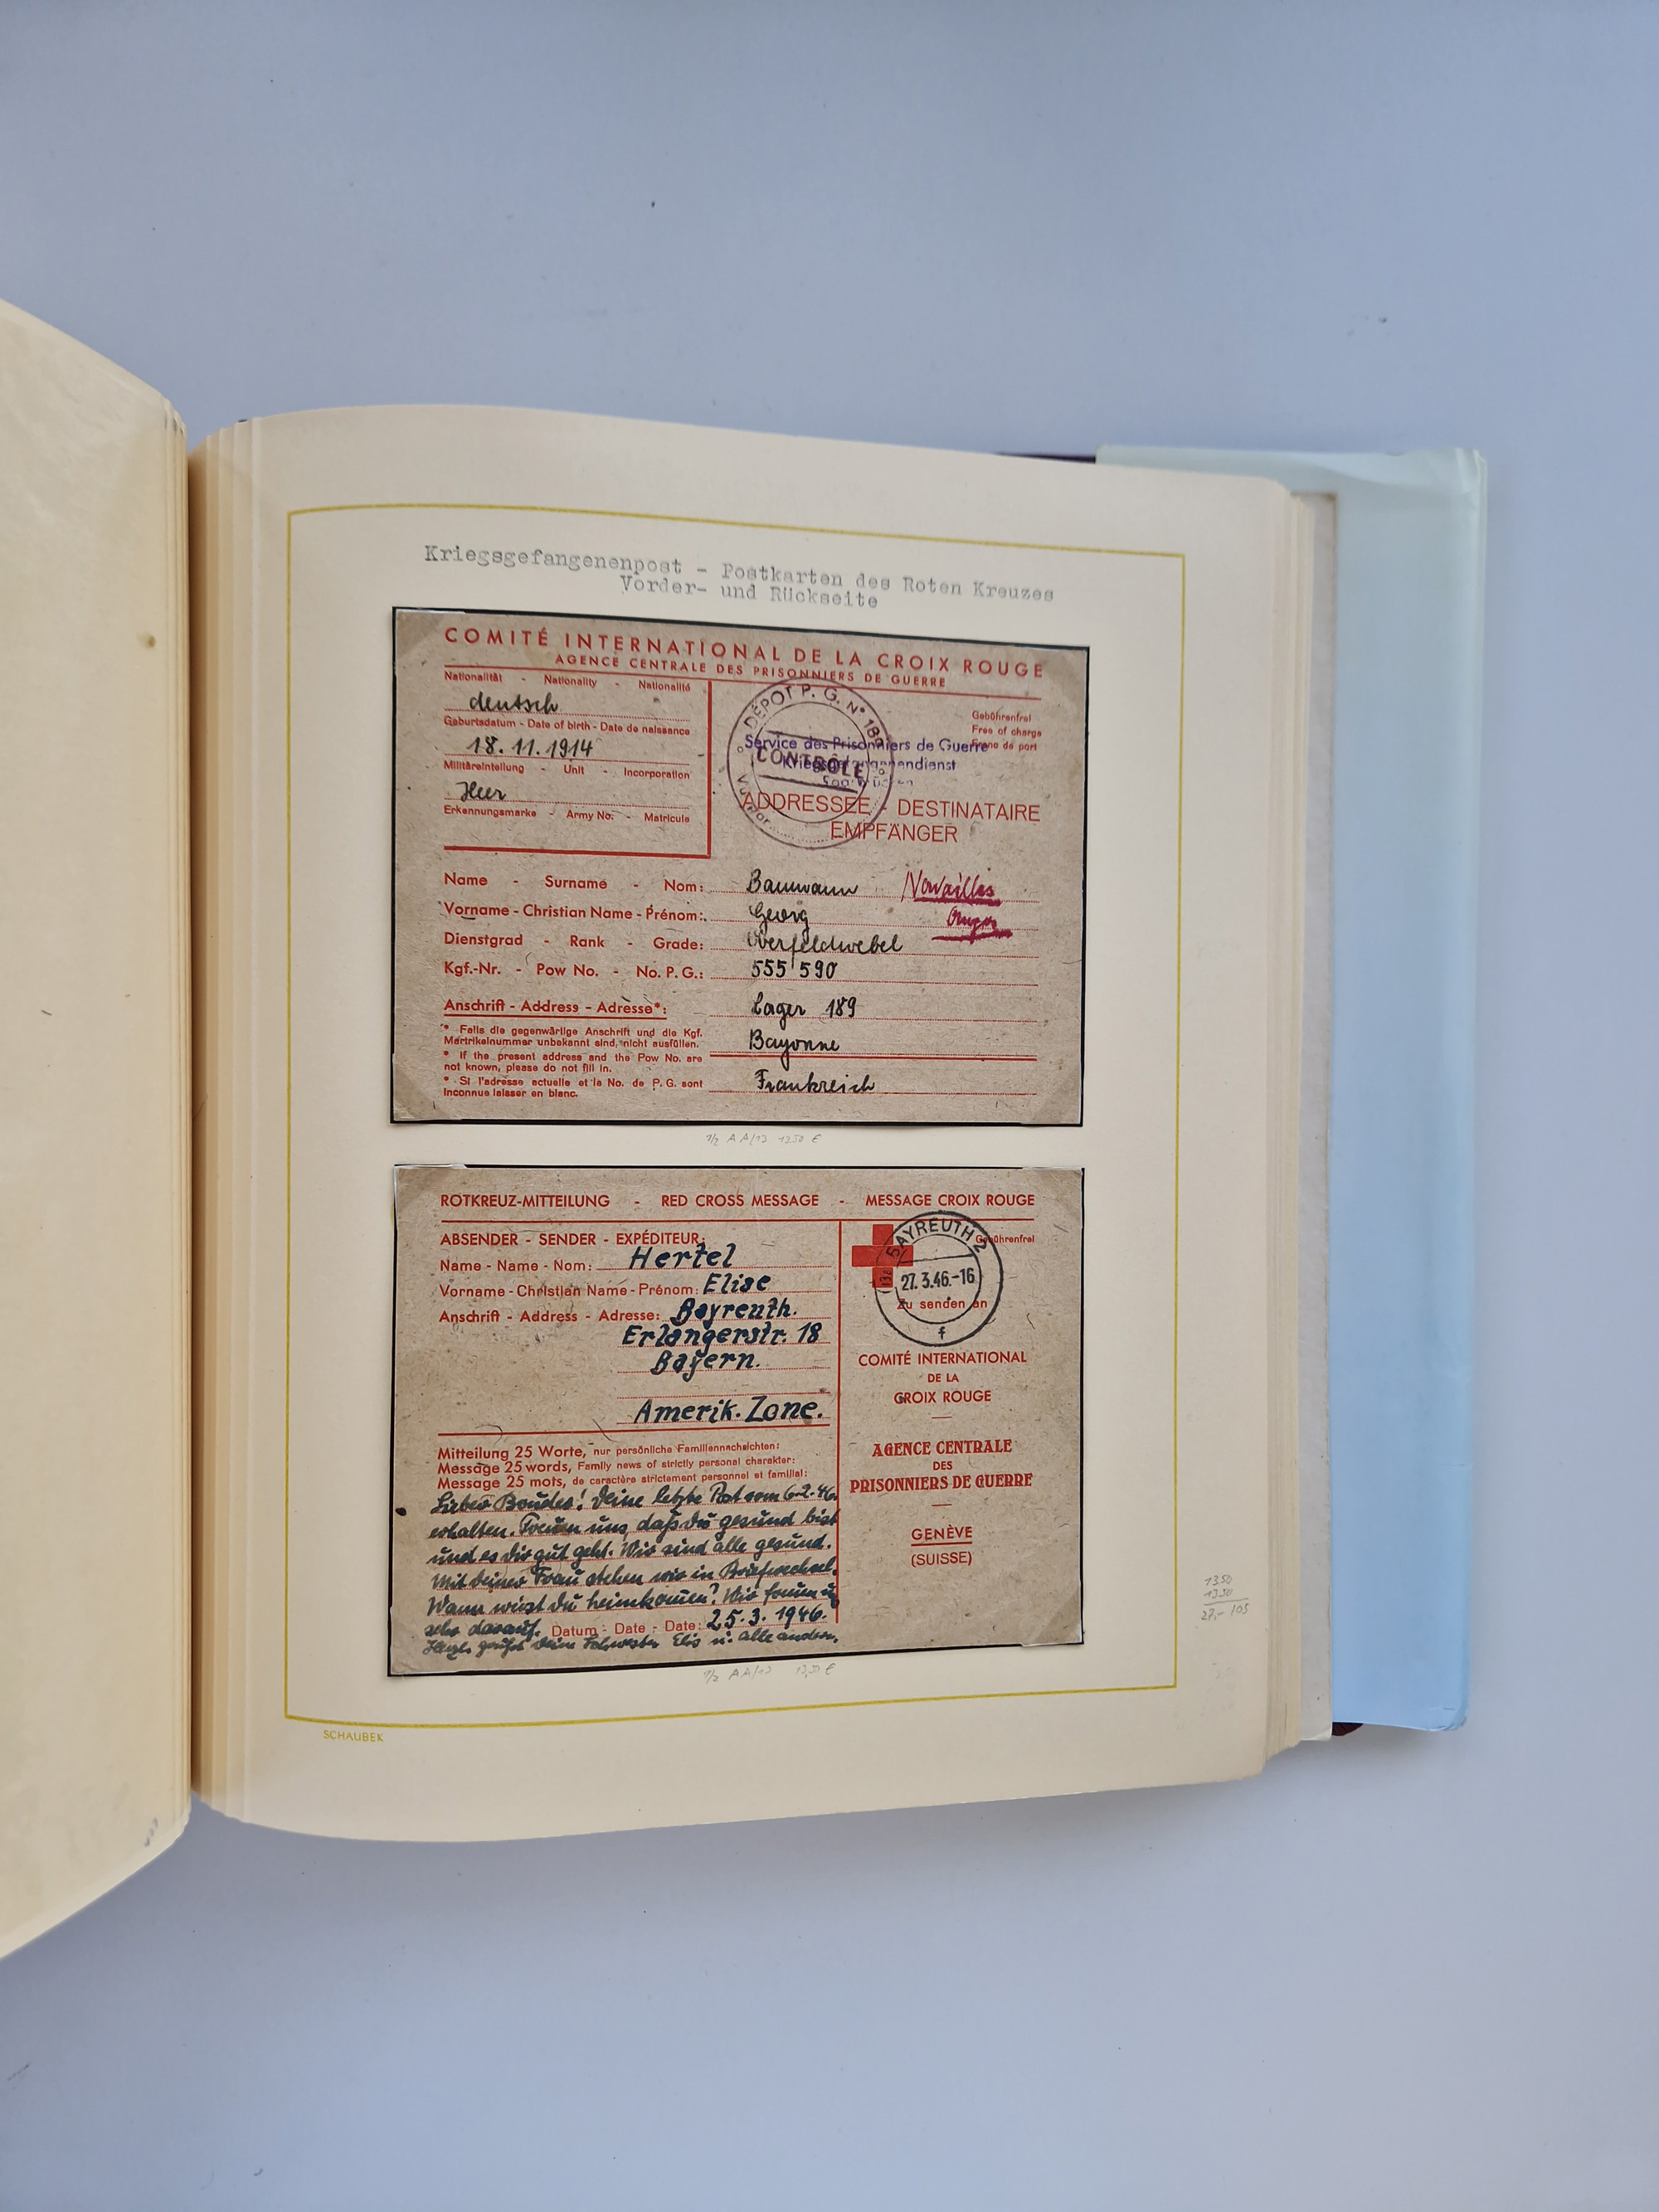 Kriegsgefangenenpost - Postkarten des Roten Kreuzes
Vorder- und Rückseite
COMITÉ INTERNATIONAL DE LA CROIX ROUGE
AGENCE CENTRALE DES PRISONNIERS DE GUERRE
Nationalität - Nationality - Nationalité
deutsch
Geburtsdatum - Date of birth - Date de naissance
18.11.1914
Militäreinteilung - Unit - Incorporation
Heer
Erkennungsmarke - Army No. - Matricule
DÉPOT P. G. N° 189
CONTRÔLE
Service des Prisonniers de Guerre
Gebührenfrei
Free of charge
Franc de port
ADDRESSEE - DESTINATAIRE
EMPFÄNGER
Name - Surname - Nom: Baumann Novailles
Vorname - Christian Name - Prénom: Georg
Dienstgrad - Rank - Grade: Oberfeldwebel
Kgf.-Nr. - Pow No. - No. P. G.: 555 590
Anschrift - Address - Adresse*: Lager 189
Bayonne
Frankreich
* Falls die gegenwärtige Anschrift und die Kgf.
Martrikelnummer unbekannt sind, nicht ausfüllen.
* If the present address and the Pow No. are
not known, please do not fill in.
* Si l'adresse actuelle et le No. de P. G. sont
inconnue laisser en blanc.
1/2 A A/13 13.50 €
ROTKREUZ-MITTEILUNG - RED CROSS MESSAGE - MESSAGE CROIX ROUGE
ABSENDER - SENDER - EXPÉDITEUR:
Name - Name - Nom: Hertel
Vorname - Christian Name - Prénom: Elise
Anschrift - Address - Adresse: Bayreuth.
Erlangerstr. 18
Bayern.
Amerik. Zone.
Gebührenfrei
BAYREUTH 2
27.3.46.-16
f
Zu senden an
COMITÉ INTERNATIONAL
DE LA
CROIX ROUGE
AGENCE CENTRALE
DES
PRISONNIERS DE GUERRE
GENÈVE
(SUISSE)
Mitteilung 25 Worte, nur persönliche Familiennachrichten:
Message 25 words, Family news of strictly personal charakter:
Message 25 mots, de caractère strictement personnel et familial:
Lieber Bruder! Deine letzte Post vom 6.2.46.
erhalten. Freuen uns, daß du gesund bist
und es dir gut geht. Wir sind alle gesund.
Mit deiner Frau stehen wir in Briefwechsel.
Wann wirst du heimkommen? Wir freuen uns
sehr darauf. Datum - Date - Date: 25.3.1946.
Herzl. grüßt deine Schwester Elis u. alle andern.
1/2 A A/13 13,50 €
13.50
13.50
27,- 105
SCHAUBEK